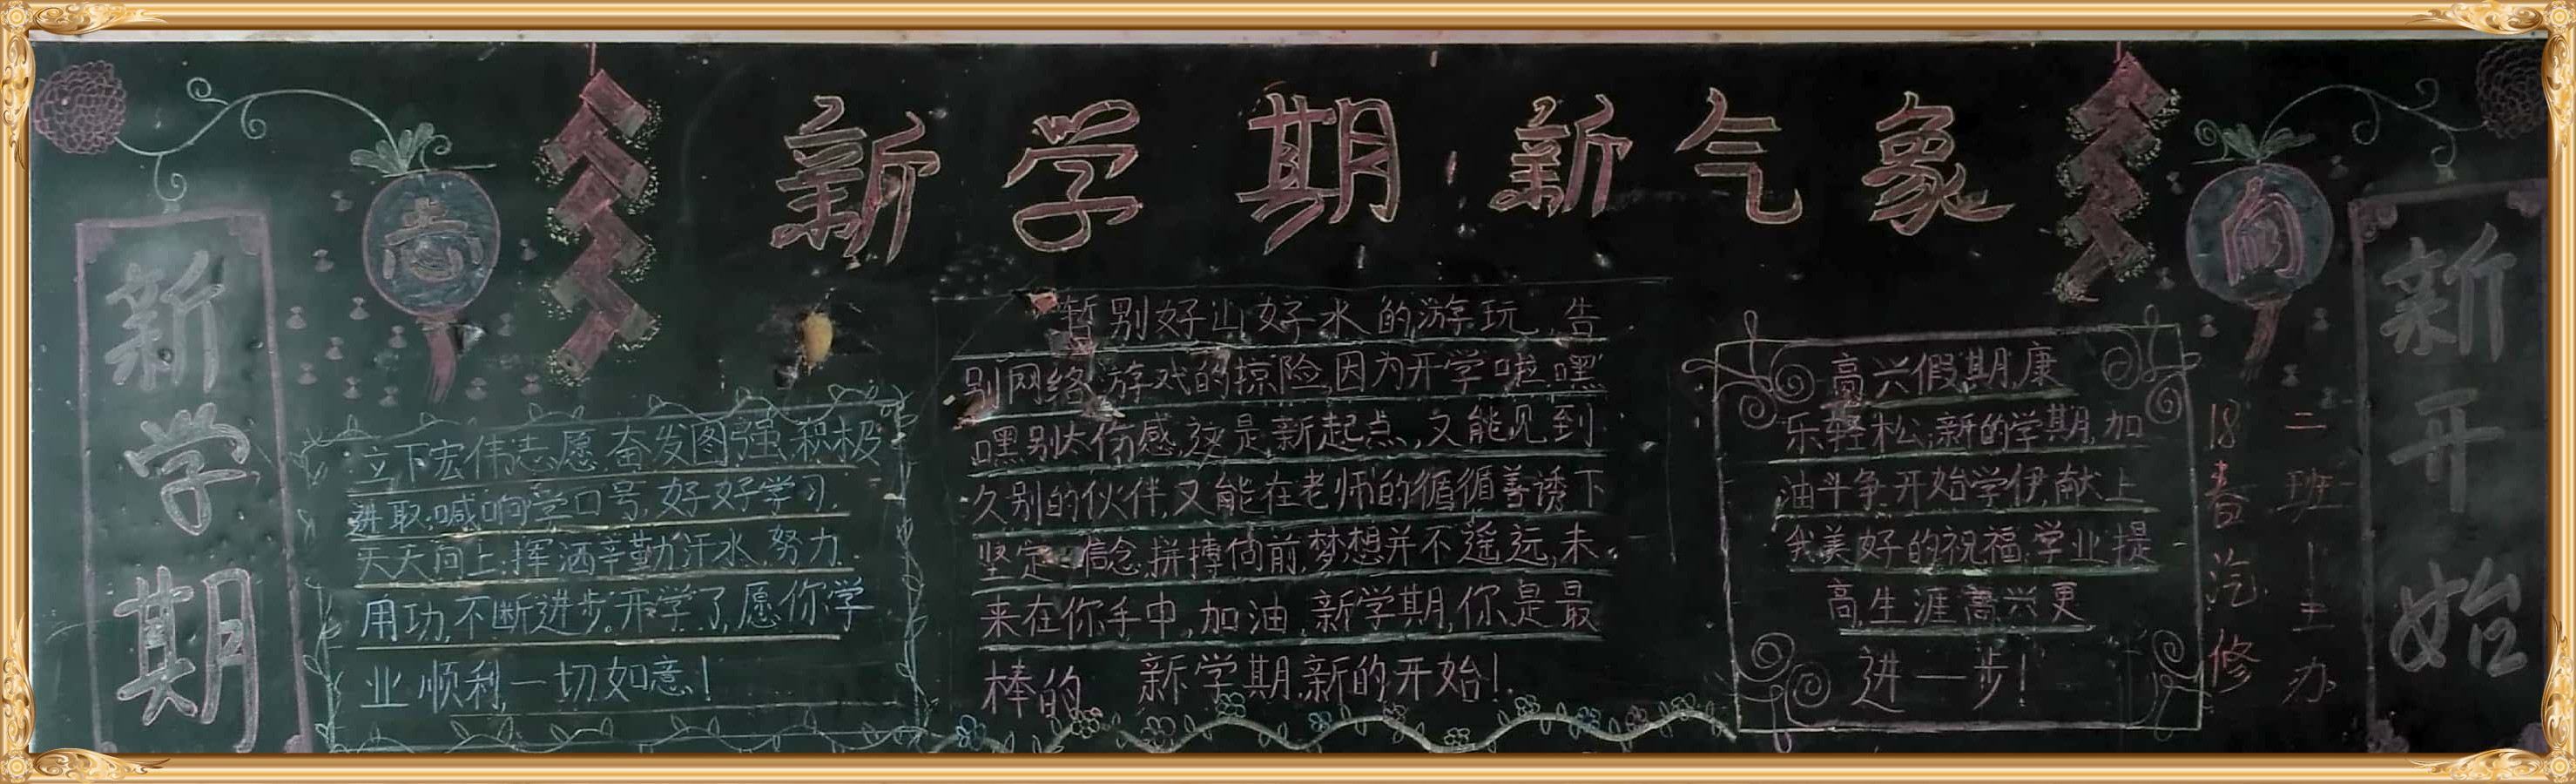 新学期新气象
新学期
志
立下宏伟志愿,奋发图强,积极
进取,喊响学口号,好好学习,
天天向上;挥洒辛勤汗水,努力
用功,不断进步。开学了,愿你学
业顺利,一切如意!
暂别好山好水的游玩,告
别网络游戏的惊险,因为开学啦,嘿
嘿别太伤感,这是新起点,又能见到
久别的伙伴,又能在老师的循循善诱下
坚定信念,拼搏向前,梦想并不遥远,未
来在你手中,加油,新学期,你是最
棒的 新学期,新的开始!
高兴假期,康
乐轻松;新的学期,加
油斗争;开始学伊,献上
我美好的祝福,学业提
高,生涯高兴更
进一步!
向
18春汽修
二班主办
新开始